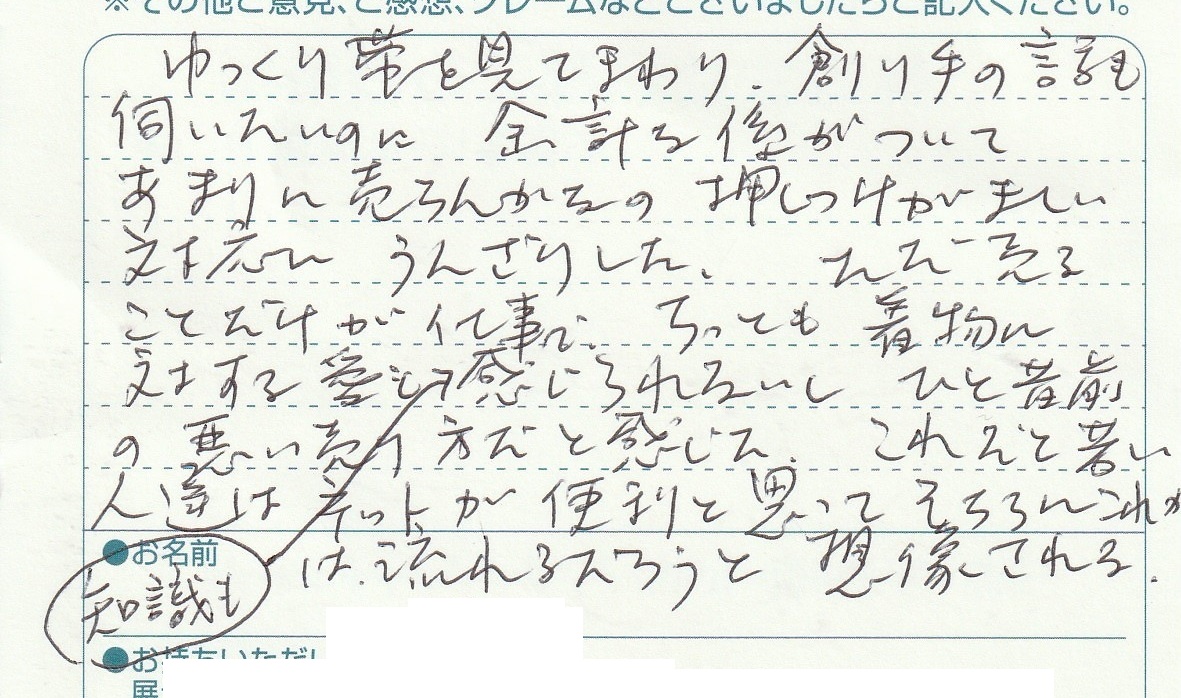 ※その他ご意見、ご感想、クレームなどございましたらご記入ください。
ゆっくり帯を見てまわり、創り手の話も
伺いたいのに 余計な係がついて
あまりに売らんかなの押しつけがましい
対応に うんざりした。 ただ売る
ことだけが仕事で、ちっとも着物に
対する愛も 感じられないし ひと昔前
の悪い売り方だと感じた。 これだと若い
人達はネットが便利と思ってそちらにこれか
●お名前
は、流れるだろうと 想像される。
知識も
●お持ちいただい
展